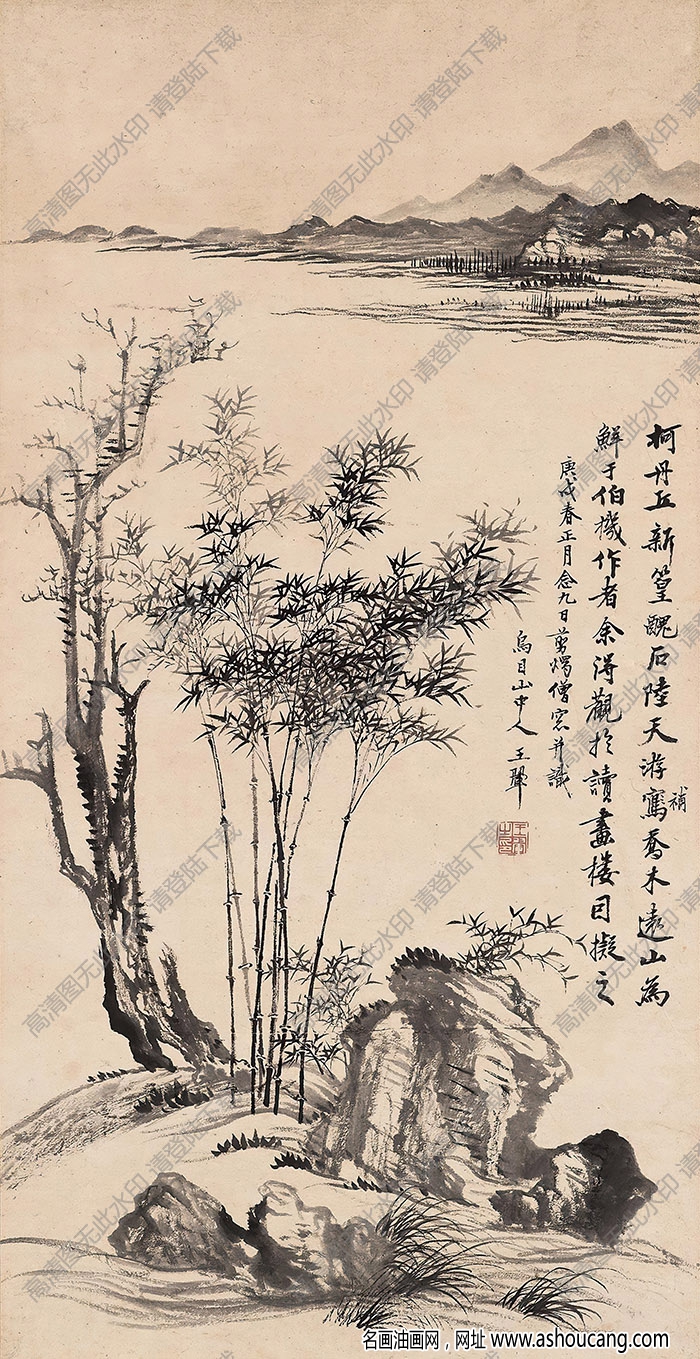 柯丹丘新篁醜石陸天游寫喬木遠山為
補
鮮于伯機作者余得觀於讀畫樓因擬之
庚戌春正月念九日剪燭僧窓并識
烏目山中人王翬
高清图无此水印 请登陆下载
名画油画网，网址 www.ashoucang.com